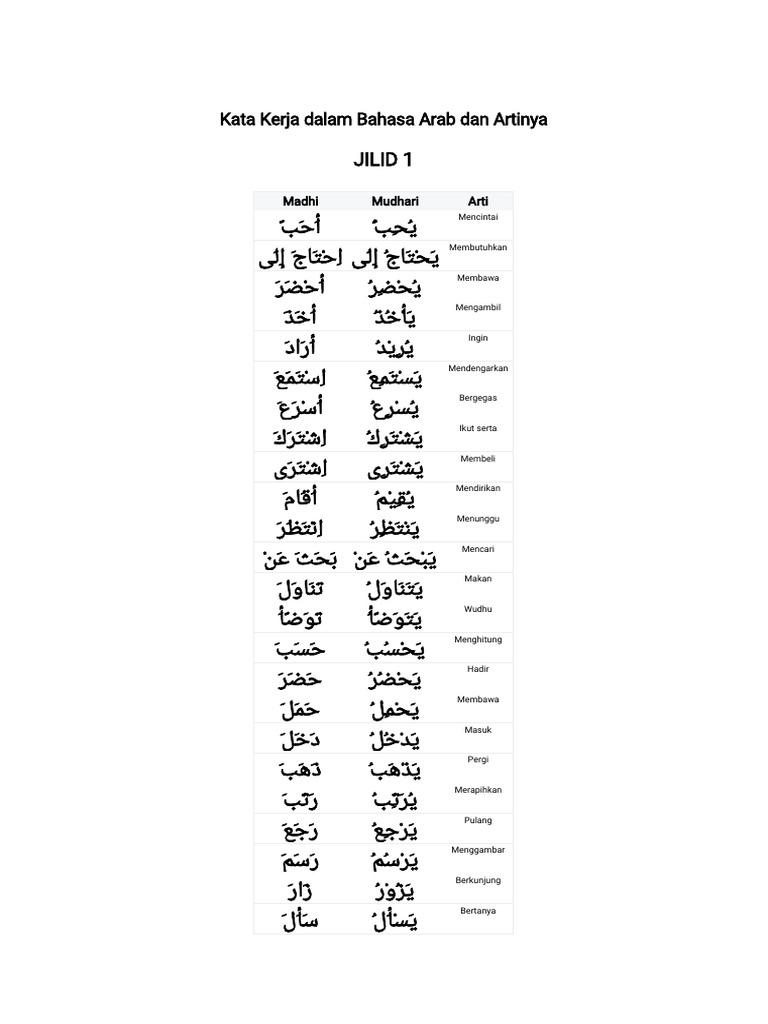 Kata Kerja dalam Bahasa Arab dan Artinya
JILID 1
Madhi Mudhari Arti
أَحَبَّ يُحِبُّ Mencintai
اِحْتَاجَ إِلَى يَحْتَاجُ إِلَى Membutuhkan
أَحْضَرَ يُحْضِرُ Membawa
أَخَذَ يَأْخُذُ Mengambil
أَرَادَ يُرِيْدُ Ingin
اِسْتَمَعَ يَسْتَمِعُ Mendengarkan
أَسْرَعَ يُسْرِعُ Bergegas
اِشْتَرَكَ يَشْتَرِكُ Ikut serta
اِشْتَرَى يَشْتَرِى Membeli
أَقَامَ يُقِيْمُ Mendirikan
اِنْتَظَرَ يَنْتَظِرُ Menunggu
بَحَثَ عَنْ يَبْحَثُ عَنْ Mencari
تَنَاوَلَ يَتَنَاوَلُ Makan
تَوَضَّأَ يَتَوَضَّأُ Wudhu
حَسَبَ يَحْسُبُ Menghitung
حَضَرَ يَحْضُرُ Hadir
حَمَلَ يَحْمِلُ Membawa
دَخَلَ يَدْخُلُ Masuk
ذَهَبَ يَذْهَبُ Pergi
رَتَّبَ يُرَتِّبُ Merapihkan
رَجَعَ يَرْجِعُ Pulang
رَسَمَ يَرْسُمُ Menggambar
زَارَ يَزُوْرُ Berkunjung
سَأَلَ يَسْأَلُ Bertanya